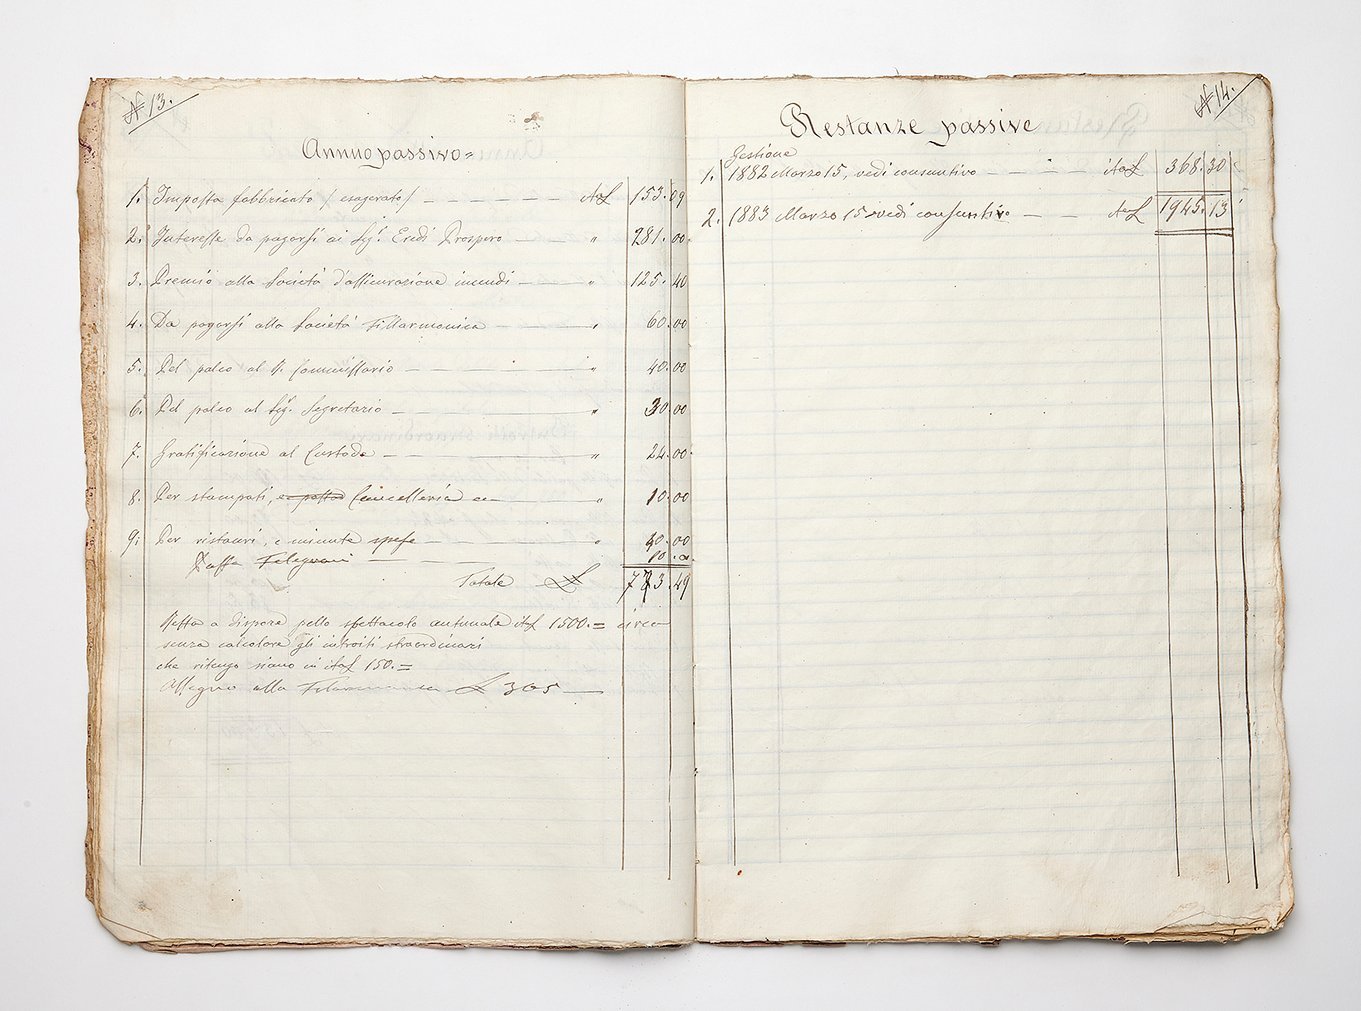 N 13.
Annuo passivo=
1. Imposta fabbricato / esagerato / itaL 153.09
2. Interesse da pagarsi ai Sigr Eredi Prospero " 281.00
3. Premio alla Società d'assicurazione incendi " 125.40
4. Da pagarsi alla Società Fillarmonica " 60.00
5. Del palco al R. Commissario " 40.00
6. Del palco al Sigr Segretario " 30.00
7. Gratificazione al Custode " 24.00
8. Per stampati, e posta Cancelleria " 10.00
9. Per ristauri, e minute spese " 40.00
Tassa 10.
Totale L 773.49
Resta a dispore pello spettacolo autunnale itaL 1500.= circa
senza calcolare gli introiti straordinari
che ritengo siano in itaL 150.=
Assegno alla Filarmonica L 365
N 14.
Restanze passive
Gestione
1. 1882 Marzo 15, vedi consuntivo itaL 368.30
2. 1883 Marzo 15 vedi consuntivo itaL 1945.13